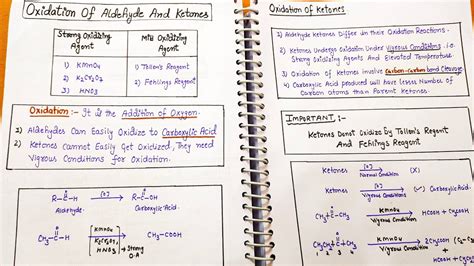 Oxidation Of Aldehyde And Ketones
Strong Oxidizing Agent
Mild Oxidizing Agent
1) KMnO4
2) K2Cr2O7
3) HNO3
1) Tollen's Reagent
2) Fehlings Reagent
Oxidation :- It is the Addition of Oxygen.
1) Aldehydes Can Easily Oxidize to Carboxylic Acid
2) Ketones Cannot Easily Get Oxidized, They need
Vigrous Conditions for Oxidation.
R-C-H [O] R-C-OH
O O
Aldehyde Carboxylic Acid
CH3-C-H KMnO4 CH3-COOH
O K2Cr2O7
HNO3 → Strong
O.A
Oxidation Of Ketones
1) Aldehyde Ketones Differ in their Oxidation Reactions.
2) Ketones Undergo Oxidation Under Vigrous Conditions i.e.
Strong Oxidizing Agents And Elevated Temperature.
3) Oxidation of Ketones involve Carbon-Carbon Bond Cleavage
4) Carboxylic Acid produced will have Lesser Number of
Carbon atoms than Parent Ketones.
IMPORTANT :-
Ketones Donot Oxidize by Tollen's Regent
And Fehlings Reagent
Ketones [O] (X)
Normal Condition
Ketones [O] Carboxylic Acid
Vigrous Condition
CH3-C-CH3 KMnO4 HCOOH + CH3COOH
O Vigrous Condition
CH3CH2-C-CH3 KMnO4 HCOOH
O Vigrous Condition